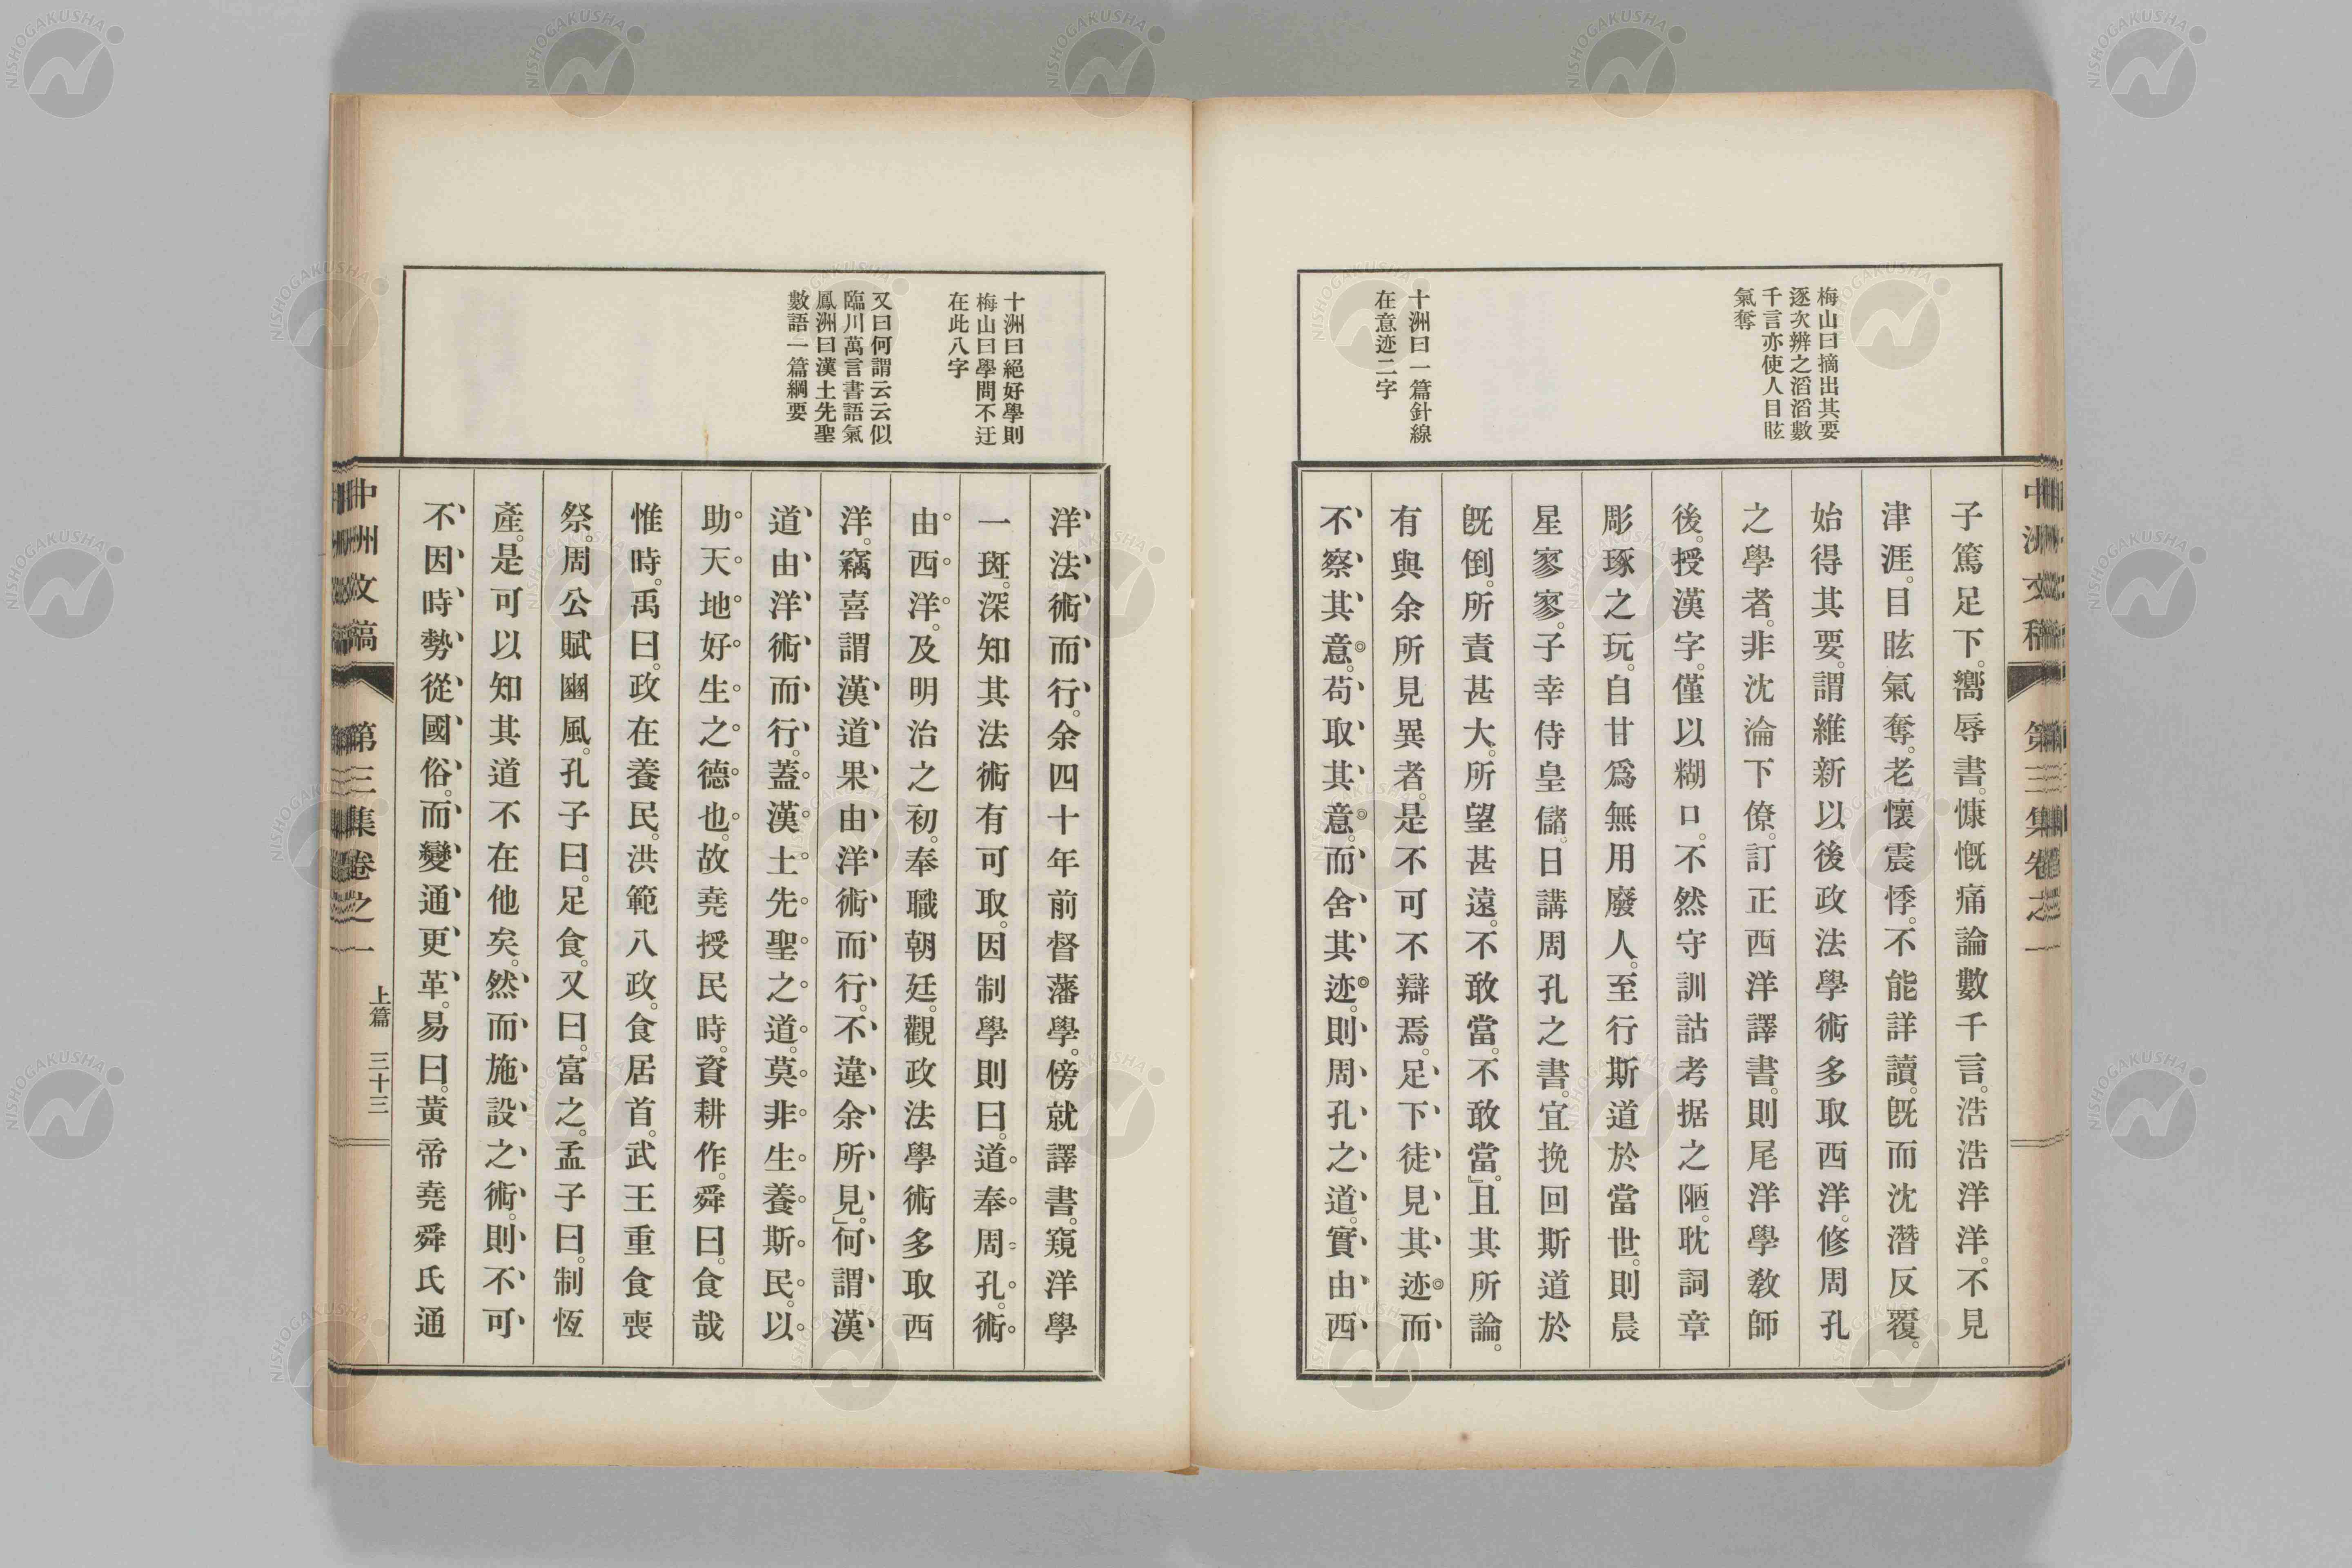 中洲文稿
第三集卷之一
梅山曰摘出其要
逐次辨之滔滔數
千言亦使人目眩
氣奪
十洲曰一篇針線
在意迹二字
子篤足下。嚮辱書。慷慨痛論數千言。浩浩洋洋。不見
津涯。目眩氣奪。老懷震悸。不能詳讀。既而沈潛反覆。
始得其要。謂維新以後政法學術多取西洋。修周孔
之學者。非沈淪下僚。訂正西洋譯書。則尾洋學教師
後。授漢字。僅以糊口。不然守訓詁考据之陋。耽詞章
彫琢之玩。自甘爲無用廢人。至行斯道於當世。則晨
星寥寥。子幸侍皇儲。日講周孔之書。宜挽回斯道於
既倒。所責甚大。所望甚遠。不敢當。不敢當。』且其所論。
有與余所見異者。是不可不辯焉。足下徒見其迹而
不察其意。苟取其意。而舍其迹。則周孔之道。實由西
十洲曰絕好學則
梅山曰學問不迂
在此八字
又曰何謂云云似
臨川萬言書語氣
鳳洲曰漢土先聖
數語一篇綱要
洋法術而行。余四十年前督藩學。傍就譯書。窺洋學
一斑。深知其法術有可取。因制學則曰。道奉周孔。術
由西洋。及明治之初。奉職朝廷。觀政法學術多取西
洋。竊喜謂漢道果由洋術而行。不違余所見。』何謂漢
道由洋術而行。蓋漢土先聖之道。莫非生養斯民。以
助天地好生之德也。故堯授民時。資耕作。舜曰。食哉
惟時。禹曰。政在養民。洪範八政。食居首。武王重食喪
祭。周公賦豳風。孔子曰。足食。又曰。富之。孟子曰。制恆
產。是可以知其道不在他矣。然而施設之術。則不可
不因時勢從國俗。而變通更革。易曰。黃帝堯舜氏通
中洲文稿
第三集卷之一
上篇
三十三
NISHOGAKUSHA